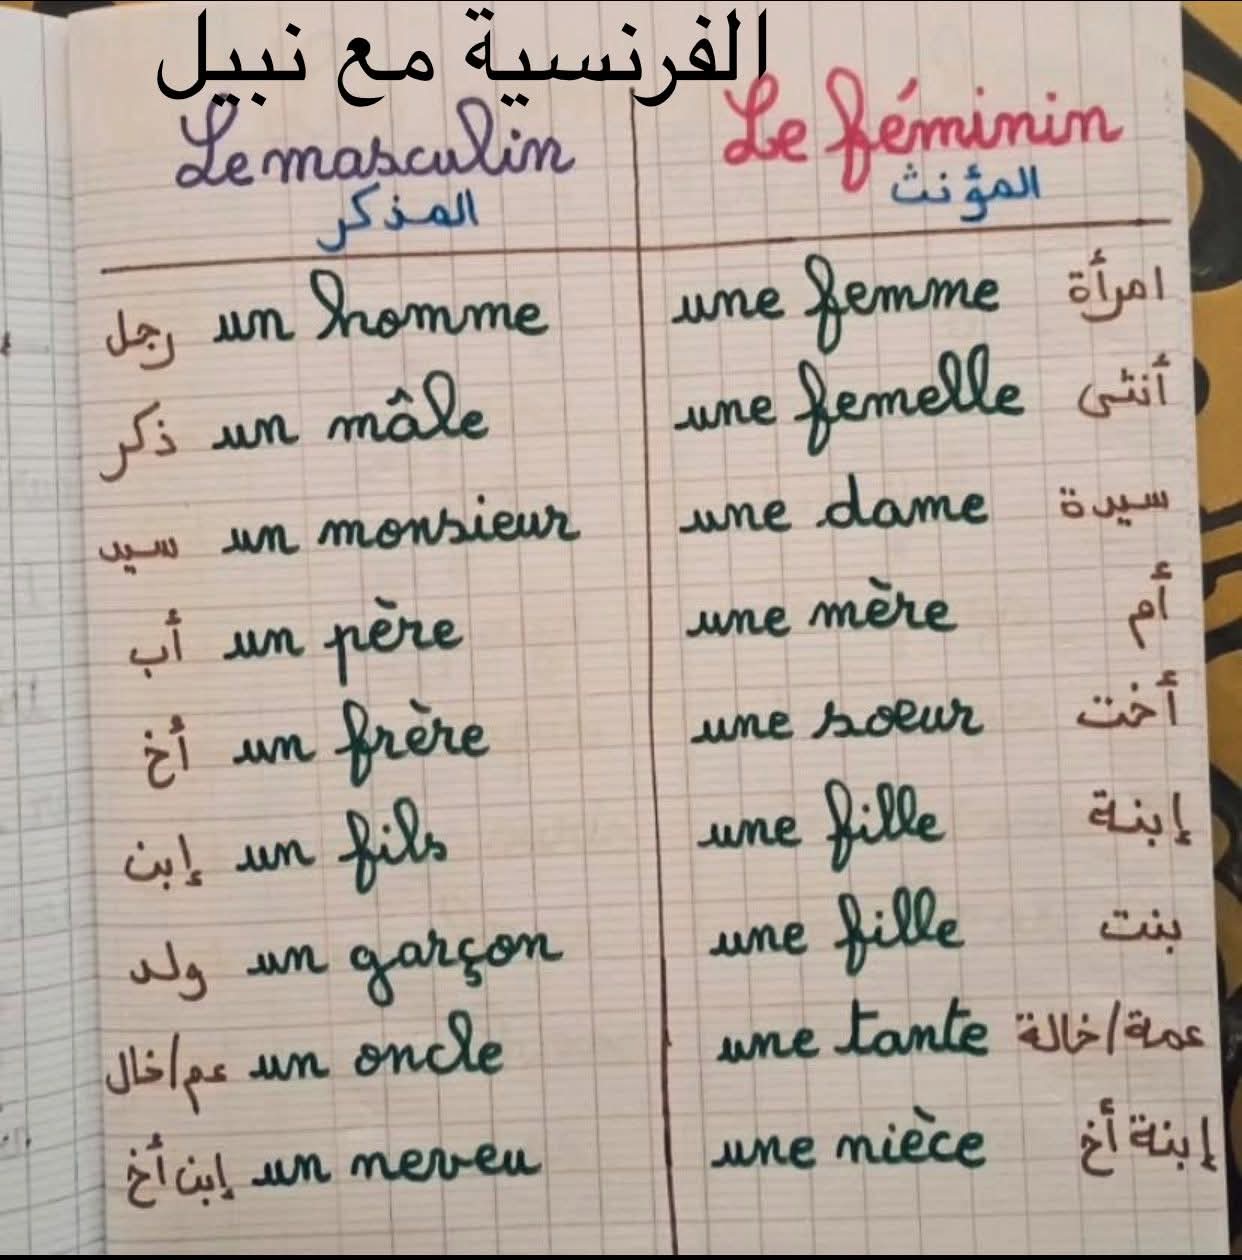 الفرنسية مع نبيل
Le masculin Le féminin
المذكر المؤنث
رجل un homme une femme امرأة
ذكر un mâle une femelle أنثى
سيد un monsieur une dame سيدة
أب un père une mère أم
أخ un frère une soeur أخت
إبن un fils une fille إبنة
ولد un garçon une fille بنت
عم/خال un oncle une tante عمة/خالة
إبن أخ un neveu une nièce إبنة أخ